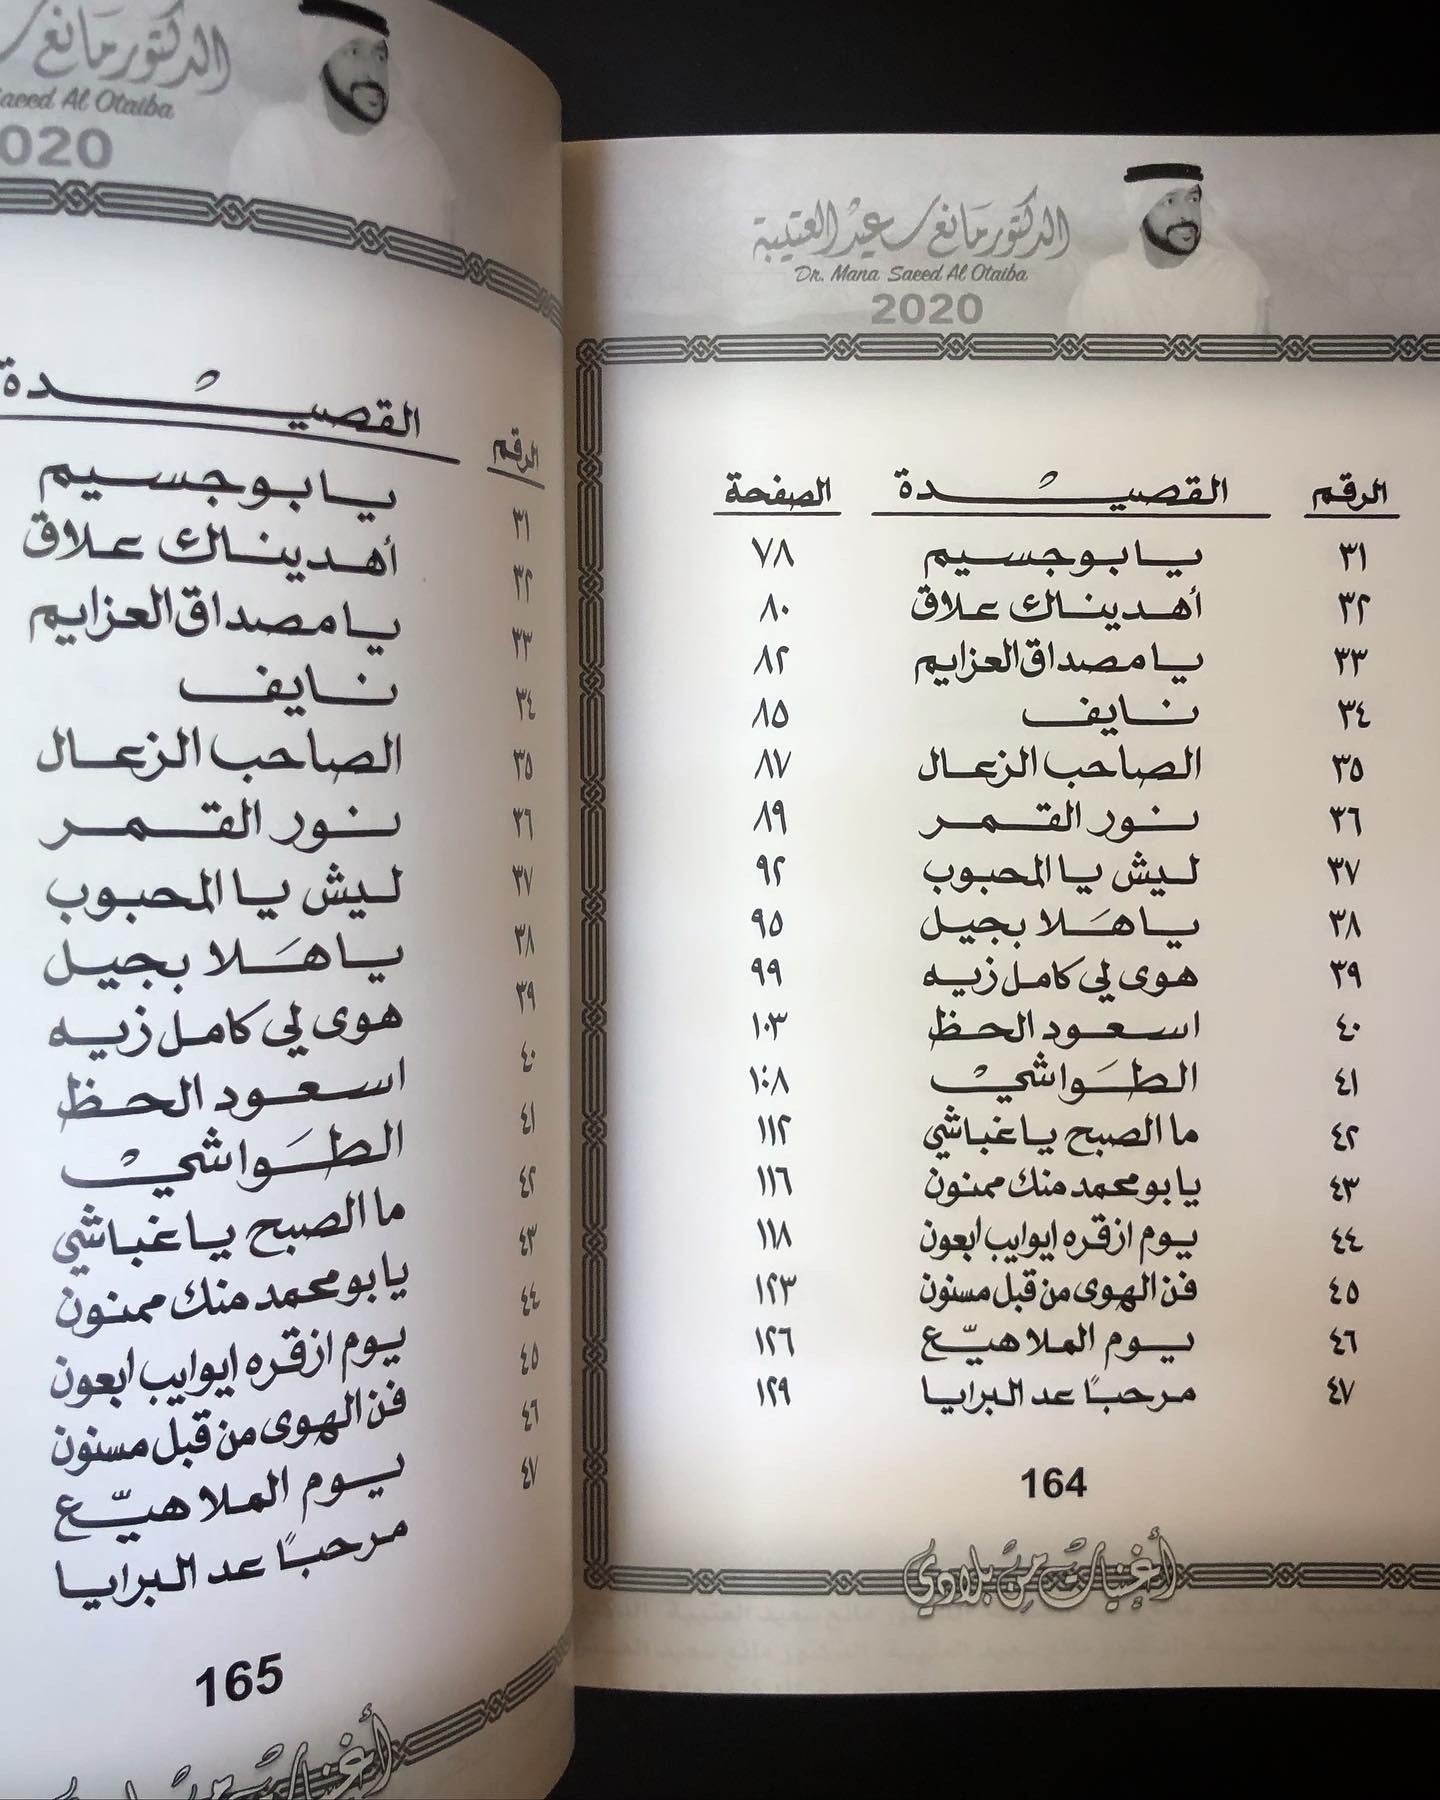 الدكتور مانع سعيد العتيبة
Dr. Mana Saeed Al Otaiba
2020
الرقم القصيدة الصفحة
٣١ يا بو جسيم ٧٨
٣٢ أهديناك علاق ٨٠
٣٣ يا مصداق العزايم ٨٢
٣٤ نايف ٨٥
٣٥ الصاحب الزعال ٨٧
٣٦ نور القمر ٨٩
٣٧ ليش يا المحبوب ٩٢
٣٨ يا هَلا بجيل ٩٥
٣٩ هوى لي كامل زيه ٩٩
٤٠ اسعود الحظ ١٠٣
٤١ الطَواشي ١٠٨
٤٢ ما الصبح يا غباشي ١١٢
٤٣ يا بو محمد منك ممنون ١١٦
٤٤ يوم ازقره ايوايب ابعون ١١٨
٤٥ فن الهوى من قبل مسنون ١٢٣
٤٦ يوم الملا هيّع ١٢٦
٤٧ مرحباً عد البرايا ١٢٩
164
أغنيات من بلادي
الدكتور مانع
Saeed Al Otaiba
2020
الرقم القصيدة
٣١ يا بو جسيم
٣٢ أهديناك علاق
٣٣ يا مصداق العزايم
٣٤ نايف
٣٥ الصاحب الزعال
٣٦ نور القمر
٣٧ ليش يا المحبوب
٣٨ يا هَلا بجيل
٣٩ هوى لي كامل زيه
٤٠ اسعود الحظ
٤١ الطَواشي
٤٢ ما الصبح يا غباشي
٤٣ يا بو محمد منك ممنون
٤٤ يوم ازقره ايوايب ابعون
٤٥ فن الهوى من قبل مسنون
٤٦ يوم الملا هيّع
٤٧ مرحباً عد البرايا
165
أغنيات من